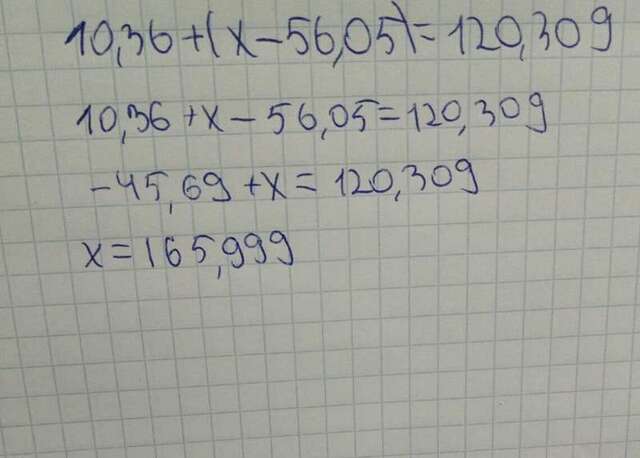 10,36+(x-56,05)=120,309
10,36+x-56,05=120,309
-45,69+x=120,309
x=165,999